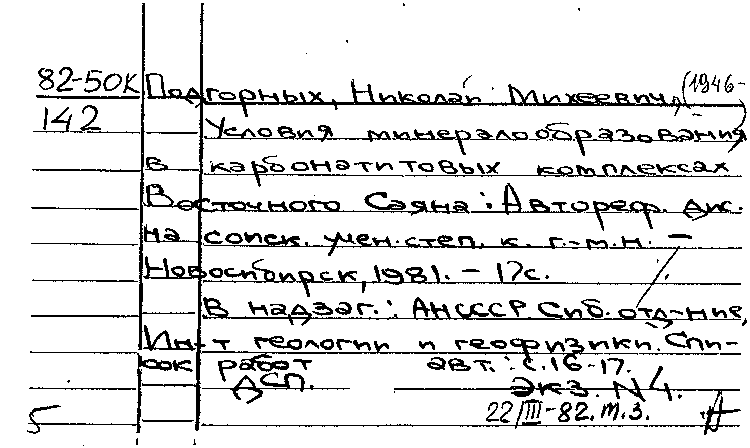 82-50К Подгорных, Николай Михеевич, (1946-
142 Условия минералообразования)
в карбонатитовых комплексах
Восточного Саяна : Автореф. дис.
на соиск. учен. степ. к. г.-м. н. -
Новосибирск, 1981. - 17с.
В надзаг.: АН СССР Сиб. отд-ние,
Ин-т геологии и геофизики. Спи-
сок работ авт.: с. 16-17.
ДСП. Экз. N 4.
5 22/III-82. т.з.